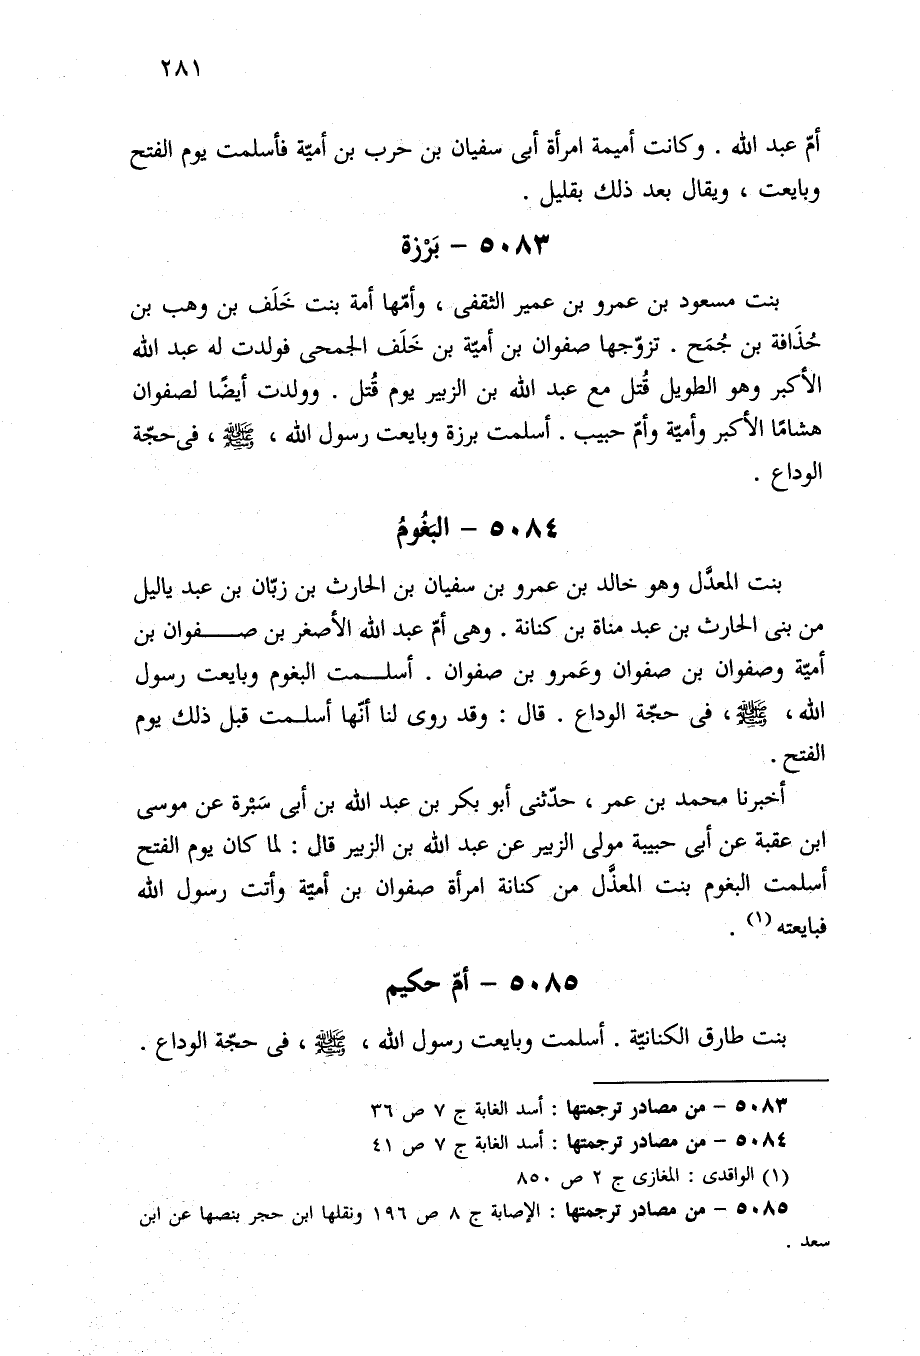 ٢٨١
أمّ عبد الله . وكانت أميمة امرأة أبى سفيان بن حرب بن أميّة فأسلمت يوم الفتح
وبايعت ، ويقال بعد ذلك بقليل .
٥٠٨٣ – بَرْزة
بنت مسعود بن عمرو بن عمير الثقفى ، وأمّها أمة بنت خَلَف بن وهب بن
حُذَافة بن جُمَح . تزوّجها صفوان بن أميّة بن خَلَف الجمحى فولدت له عبد الله
الأكبر وهو الطويل قُتل مع عبد الله بن الزبير يوم قُتل . وولدت أيضًا لصفوان
هشامًا الأكبر وأميّة وأمّ حبيب . أسلمت برزة وبايعت رسول الله ، ﷺ ، فى حجّة
الوداع .
٥٠٨٤ – البَغُومُ
بنت المعذَّل وهو خالد بن عمرو بن سفيان بن الحارث بن زبّان بن عبد ياليل
من بنى الحارث بن عبد مناة بن كنانة . وهى أمّ عبد الله الأصغر بن صفوان بن
أميّة وصفوان بن صفوان وعَمرو بن صفوان . أسلمت البغوم وبايعت رسول
الله ، ﷺ ، فى حجّة الوداع . قال : وقد روى لنا أنّها أسلمت قبل ذلك يوم
الفتح .
أخبرنا محمد بن عمر ، حدّثنى أبو بكر بن عبد الله بن أبى سَبْرة عن موسى
ابن عقبة عن أبى حبيبة مولى الزبير عن عبد الله بن الزبير قال : لما كان يوم الفتح
أسلمت البغوم بنت المعذَّل من كنانة امرأة صفوان بن أميّة وأتت رسول الله
فبايعته (١) .
٥٠٨٥ – أمّ حكيم
بنت طارق الكنانيّة . أسلمت وبايعت رسول الله ، ﷺ ، فى حجّة الوداع .
٥٠٨٣ – من مصادر ترجمتها : أسد الغابة ج ٧ ص ٣٦
٥٠٨٤ – من مصادر ترجمتها : أسد الغابة ج ٧ ص ٤١
(١) الواقدى : المغازى ج ٢ ص ٨٥٠
٥٠٨٥ – من مصادر ترجمتها : الإصابة ج ٨ ص ١٩٦ ونقلها ابن حجر بنصها عن ابن
سعد .